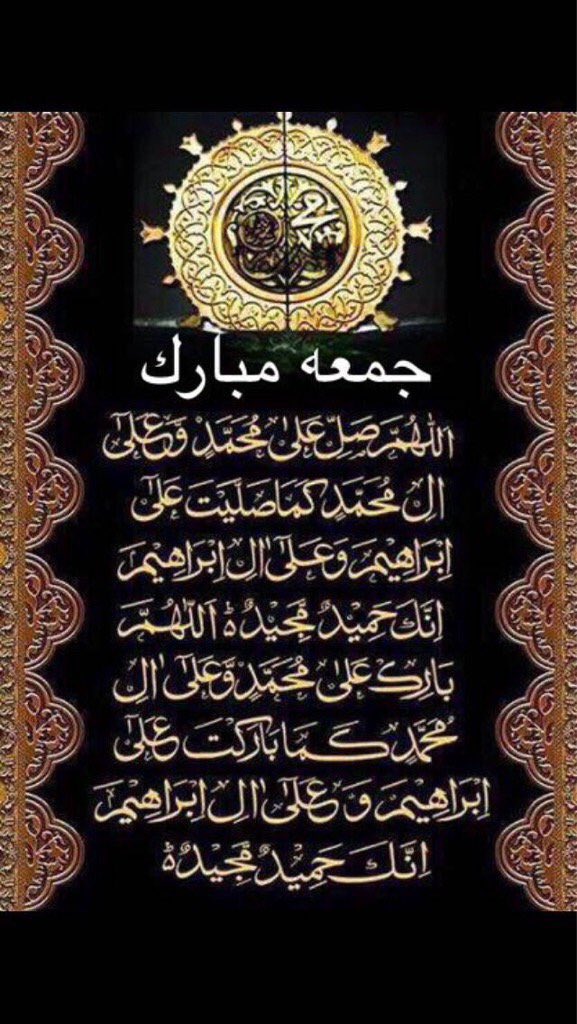 جمعه مبارك
اَللّٰهُمَّ صَلِّ عَلٰى مُحَمَّدٍ وَّعَلٰٓى
اٰلِ مُحَمَّدٍ كَمَا صَلَّيْتَ عَلٰٓى
اِبْرَاهِيْمَ وَعَلٰٓى اٰلِ اِبْرَاهِيْمَ
اِنَّكَ حَمِيْدٌ مَّجِيْدٌ ؕ اَللّٰهُمَّ
بَارِكْ عَلٰى مُحَمَّدٍ وَّعَلٰٓى اٰلِ
مُحَمَّدٍ كَمَا بَارَكْتَ عَلٰٓى
اِبْرَاهِيْمَ وَعَلٰٓى اٰلِ اِبْرَاهِيْمَ
اِنَّكَ حَمِيْدٌ مَّجِيْدٌ ؕ